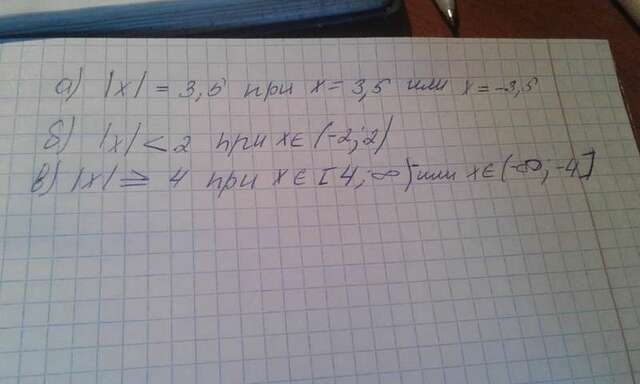 а) |x| = 3,5 при x = 3,5 или x = -3,5
б) |x| < 2 при x∈(-2; 2)
в) |x| ≥ 4 при x∈[4; ∞) или x∈(-∞; -4]